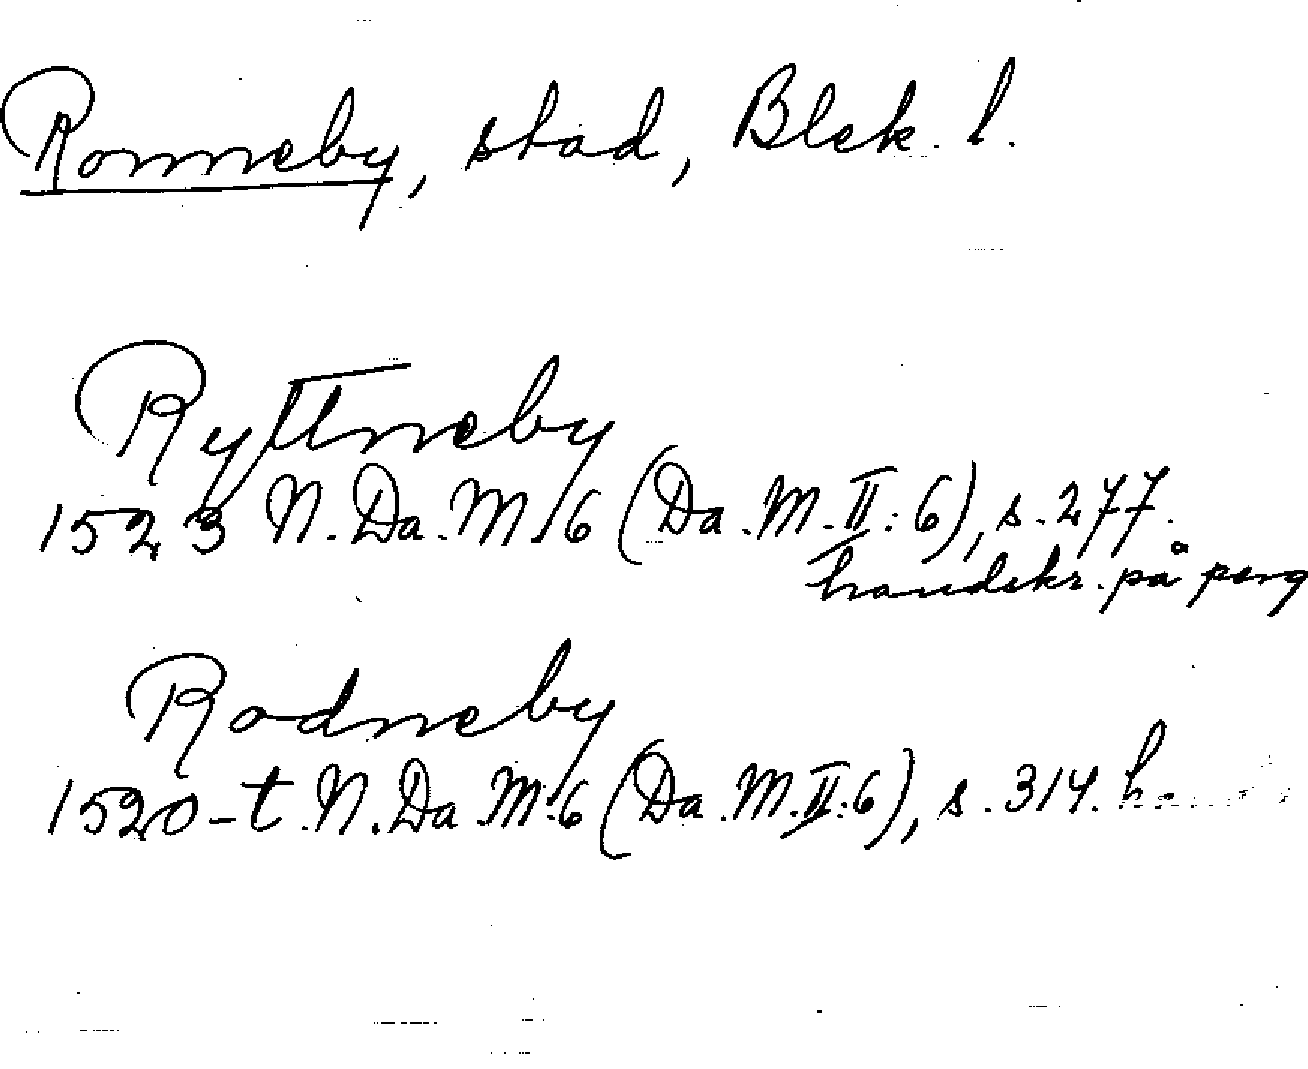 Ronneby, stad, Blek. l.
Ryttneby
1523 N. Da. M. 6 (Da. M. II: 6), s. 277.
handskr. på perg
Rodneby
1520-t. N. Da. M. 6 (Da. M. II: 6), s. 314.